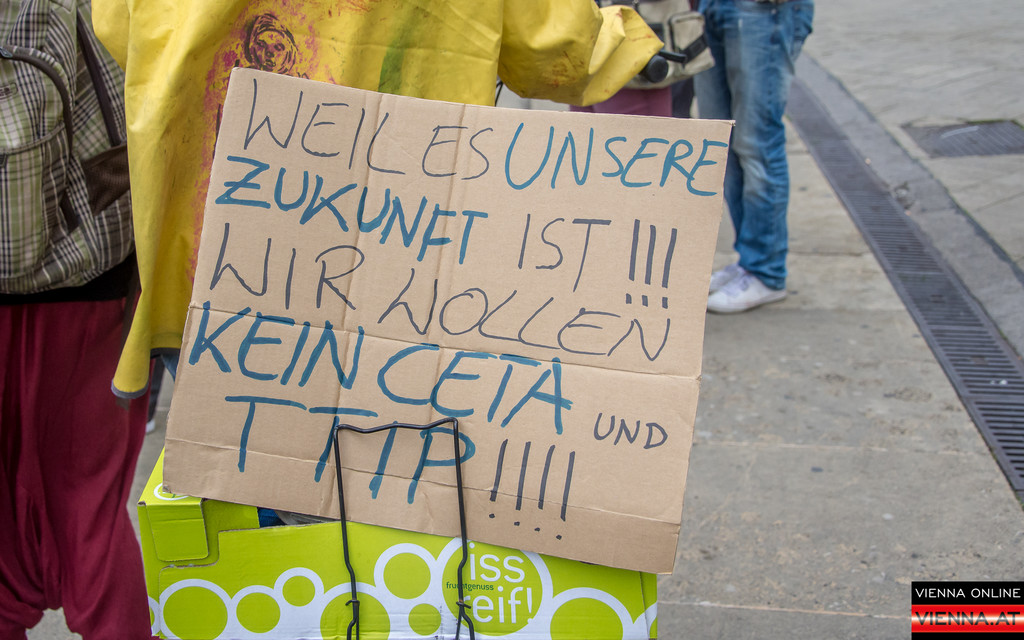 WEIL ES UNSERE
ZUKUNFT IST !!!
WIR WOLLEN
KEIN CETA UND
TTIP !!!!
iss
fruchtgenuss
reif!
VIENNA ONLINE
VIENNA.AT